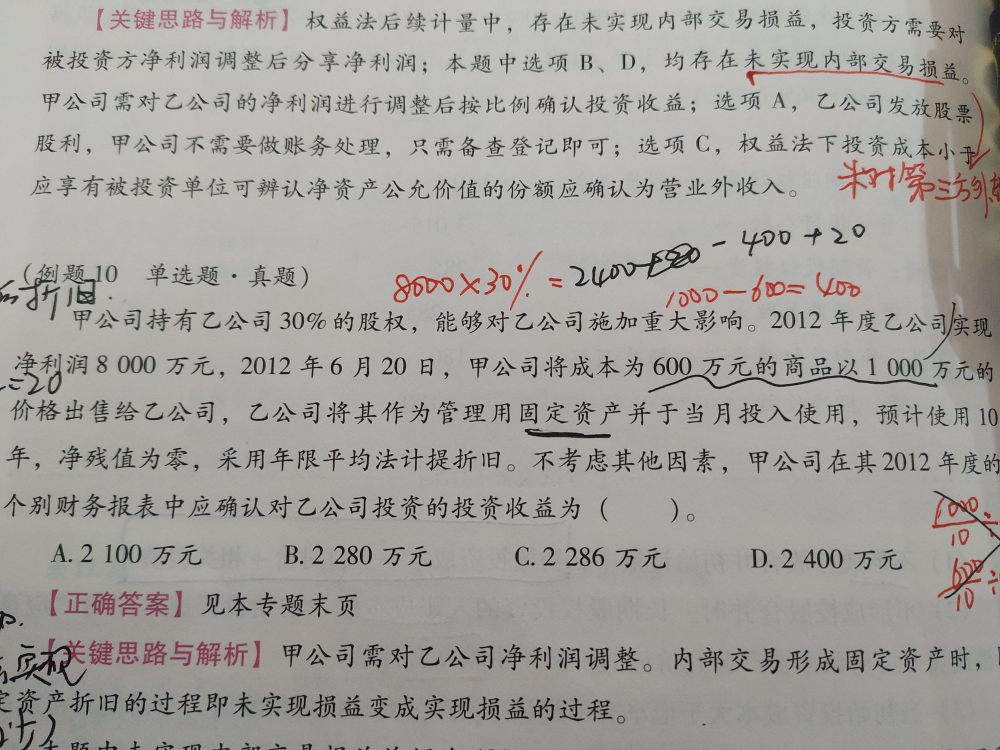 【关键思路与解析】权益法后续计量中，存在未实现内部交易损益，投资方需要对
被投资方净利润调整后分享净利润；本题中选项 B、D，均存在未实现内部交易损益。
甲公司需对乙公司的净利润进行调整后按比例确认投资收益；选项 A，乙公司发放股票
股利，甲公司不需要做账务处理，只需备查登记即可；选项 C，权益法下投资成本小于
应享有被投资单位可辨认净资产公允价值的份额应确认为营业外收入。
未对第三方外
(例题 10 单选题·真题)
8000×30%=2400 - 400 + 20
1000-600=400
折旧
甲公司持有乙公司 30% 的股权，能够对乙公司施加重大影响。2012 年度乙公司实现
净利润 8 000 万元，2012 年 6 月 20 日，甲公司将成本为 600 万元的商品以 1 000 万元的
=20
价格出售给乙公司，乙公司将其作为管理用固定资产并于当月投入使用，预计使用 10
年，净残值为零，采用年限平均法计提折旧。不考虑其他因素，甲公司在其 2012 年度的
个别财务报表中应确认对乙公司投资的投资收益为（ ）。
1000/10÷
600/10÷
A. 2 100 万元 B. 2 280 万元 C. 2 286 万元 D. 2 400 万元
【正确答案】见本专题末页
【关键思路与解析】甲公司需对乙公司净利润调整。内部交易形成固定资产时，
实现
定资产折旧的过程即未实现损益变成实现损益的过程。